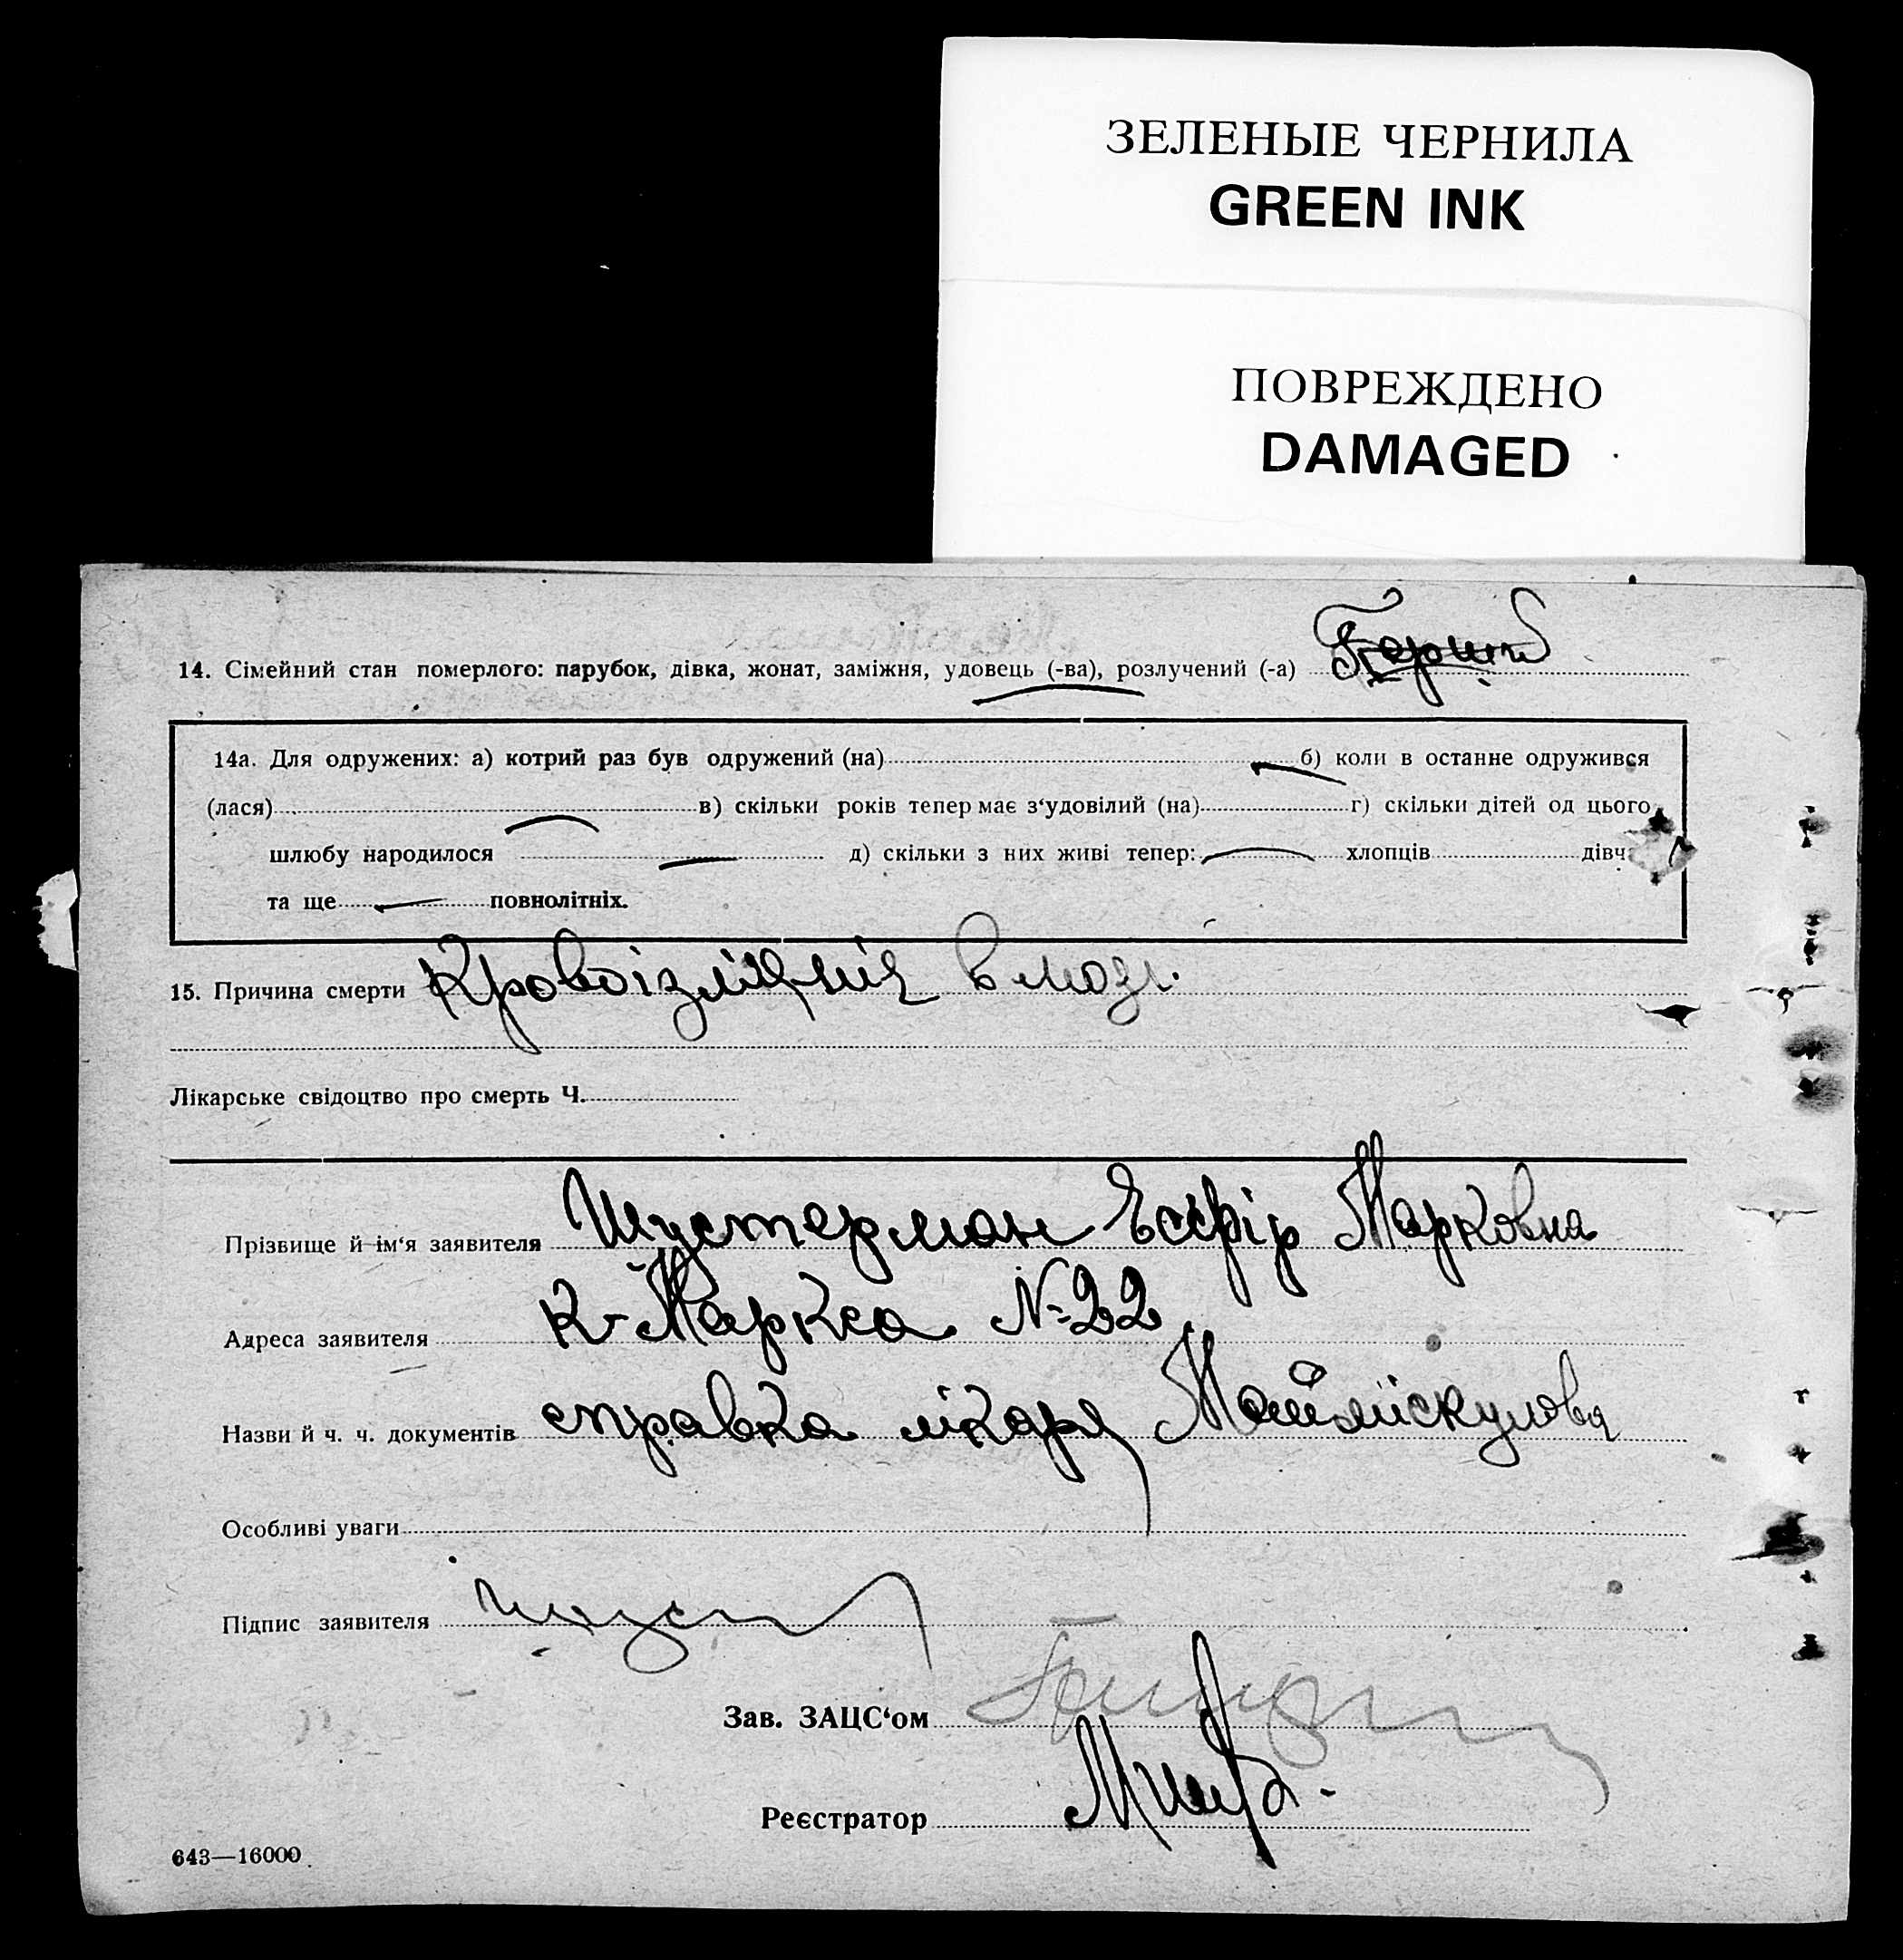 ЗЕЛЕНЫЕ ЧЕРНИЛА
GREEN INK
ПОВРЕЖДЕНО
DAMAGED
14. Сімейний стан померлого: парубок, дівка, жонат, заміжня, удовець (-ва), розлучений (-а)
14а. Для одружених: а) котрий раз був одружений (на) б) коли в останнє одружився
(лася) в) скільки років тепер має з‘удовілий (на) г) скільки дітей од цього
шлюбу народилося д) скільки з них живі тепер: хлопців дівч
та ще повнолітніх.
15. Причина смерти Кровоізліяния в мозг.
Лікарське свідоцтво про смерть Ч.
Прізвище й ім‘я заявителя Шустерман Есфір Марковна
Адреса заявителя К-Маркса № 22
Назви й ч. ч. документів справка лікаря
Особливі уваги
Підпис заявителя
Зав. ЗАЦС‘ом
Реєстратор
643—16000